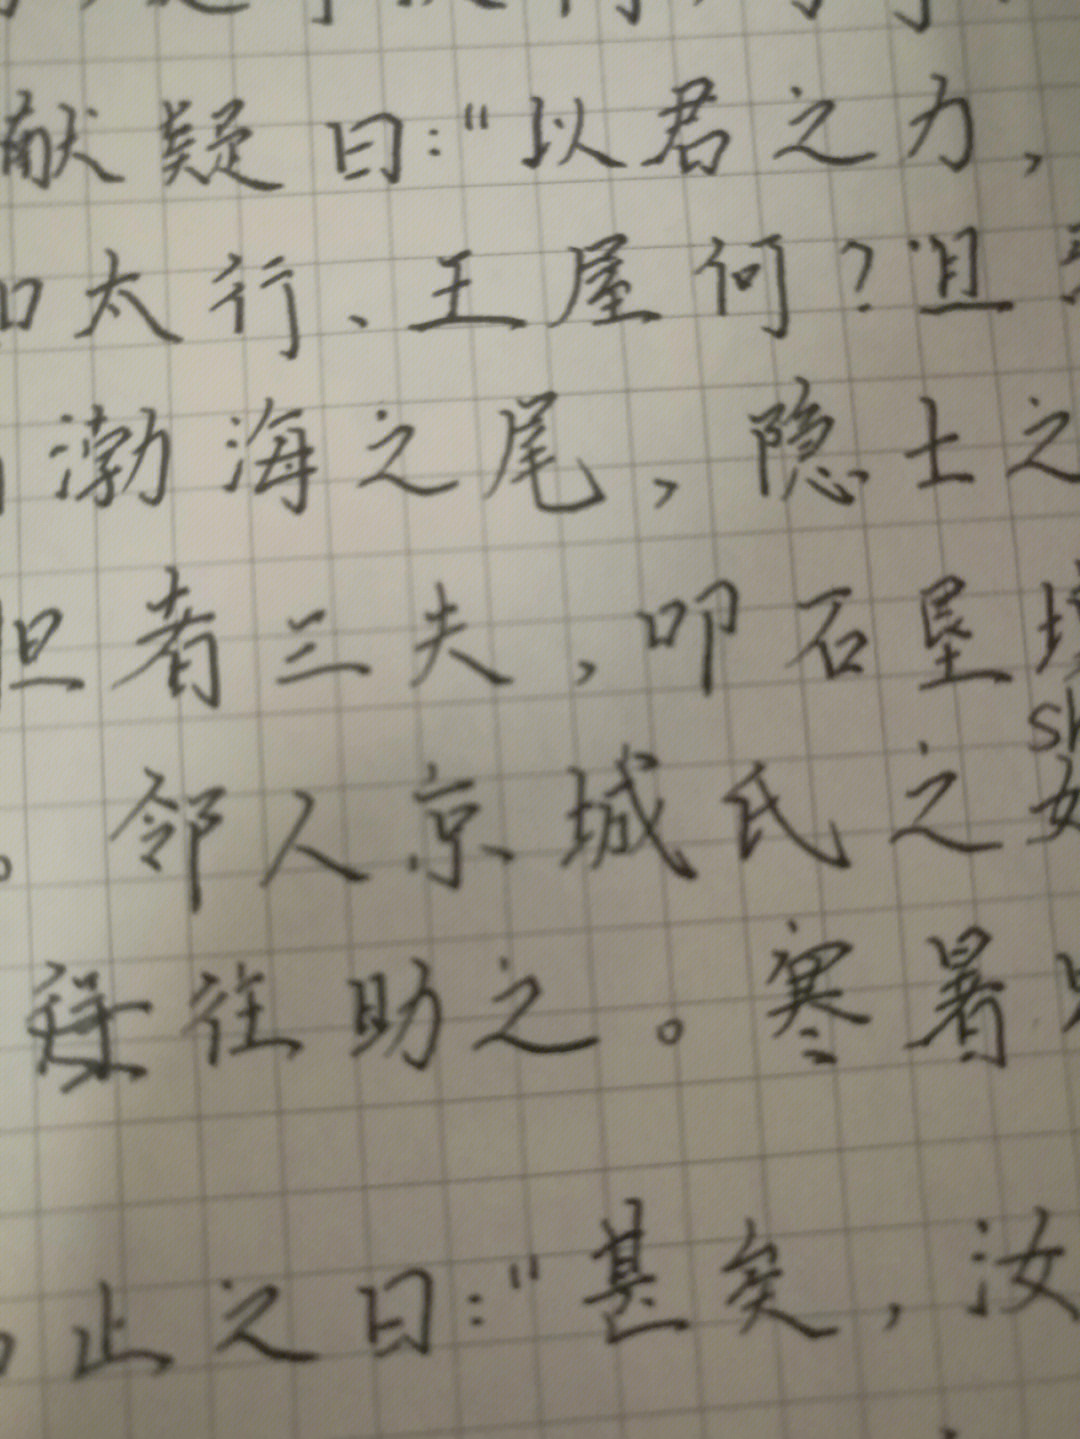 献疑曰:“以君之力,
如太行、王屋何?且
渤海之尾,隐土之
担者三夫,叩石垦壤
sh
。邻人京城氏之
往助之。寒暑
止之曰:“甚矣,汝